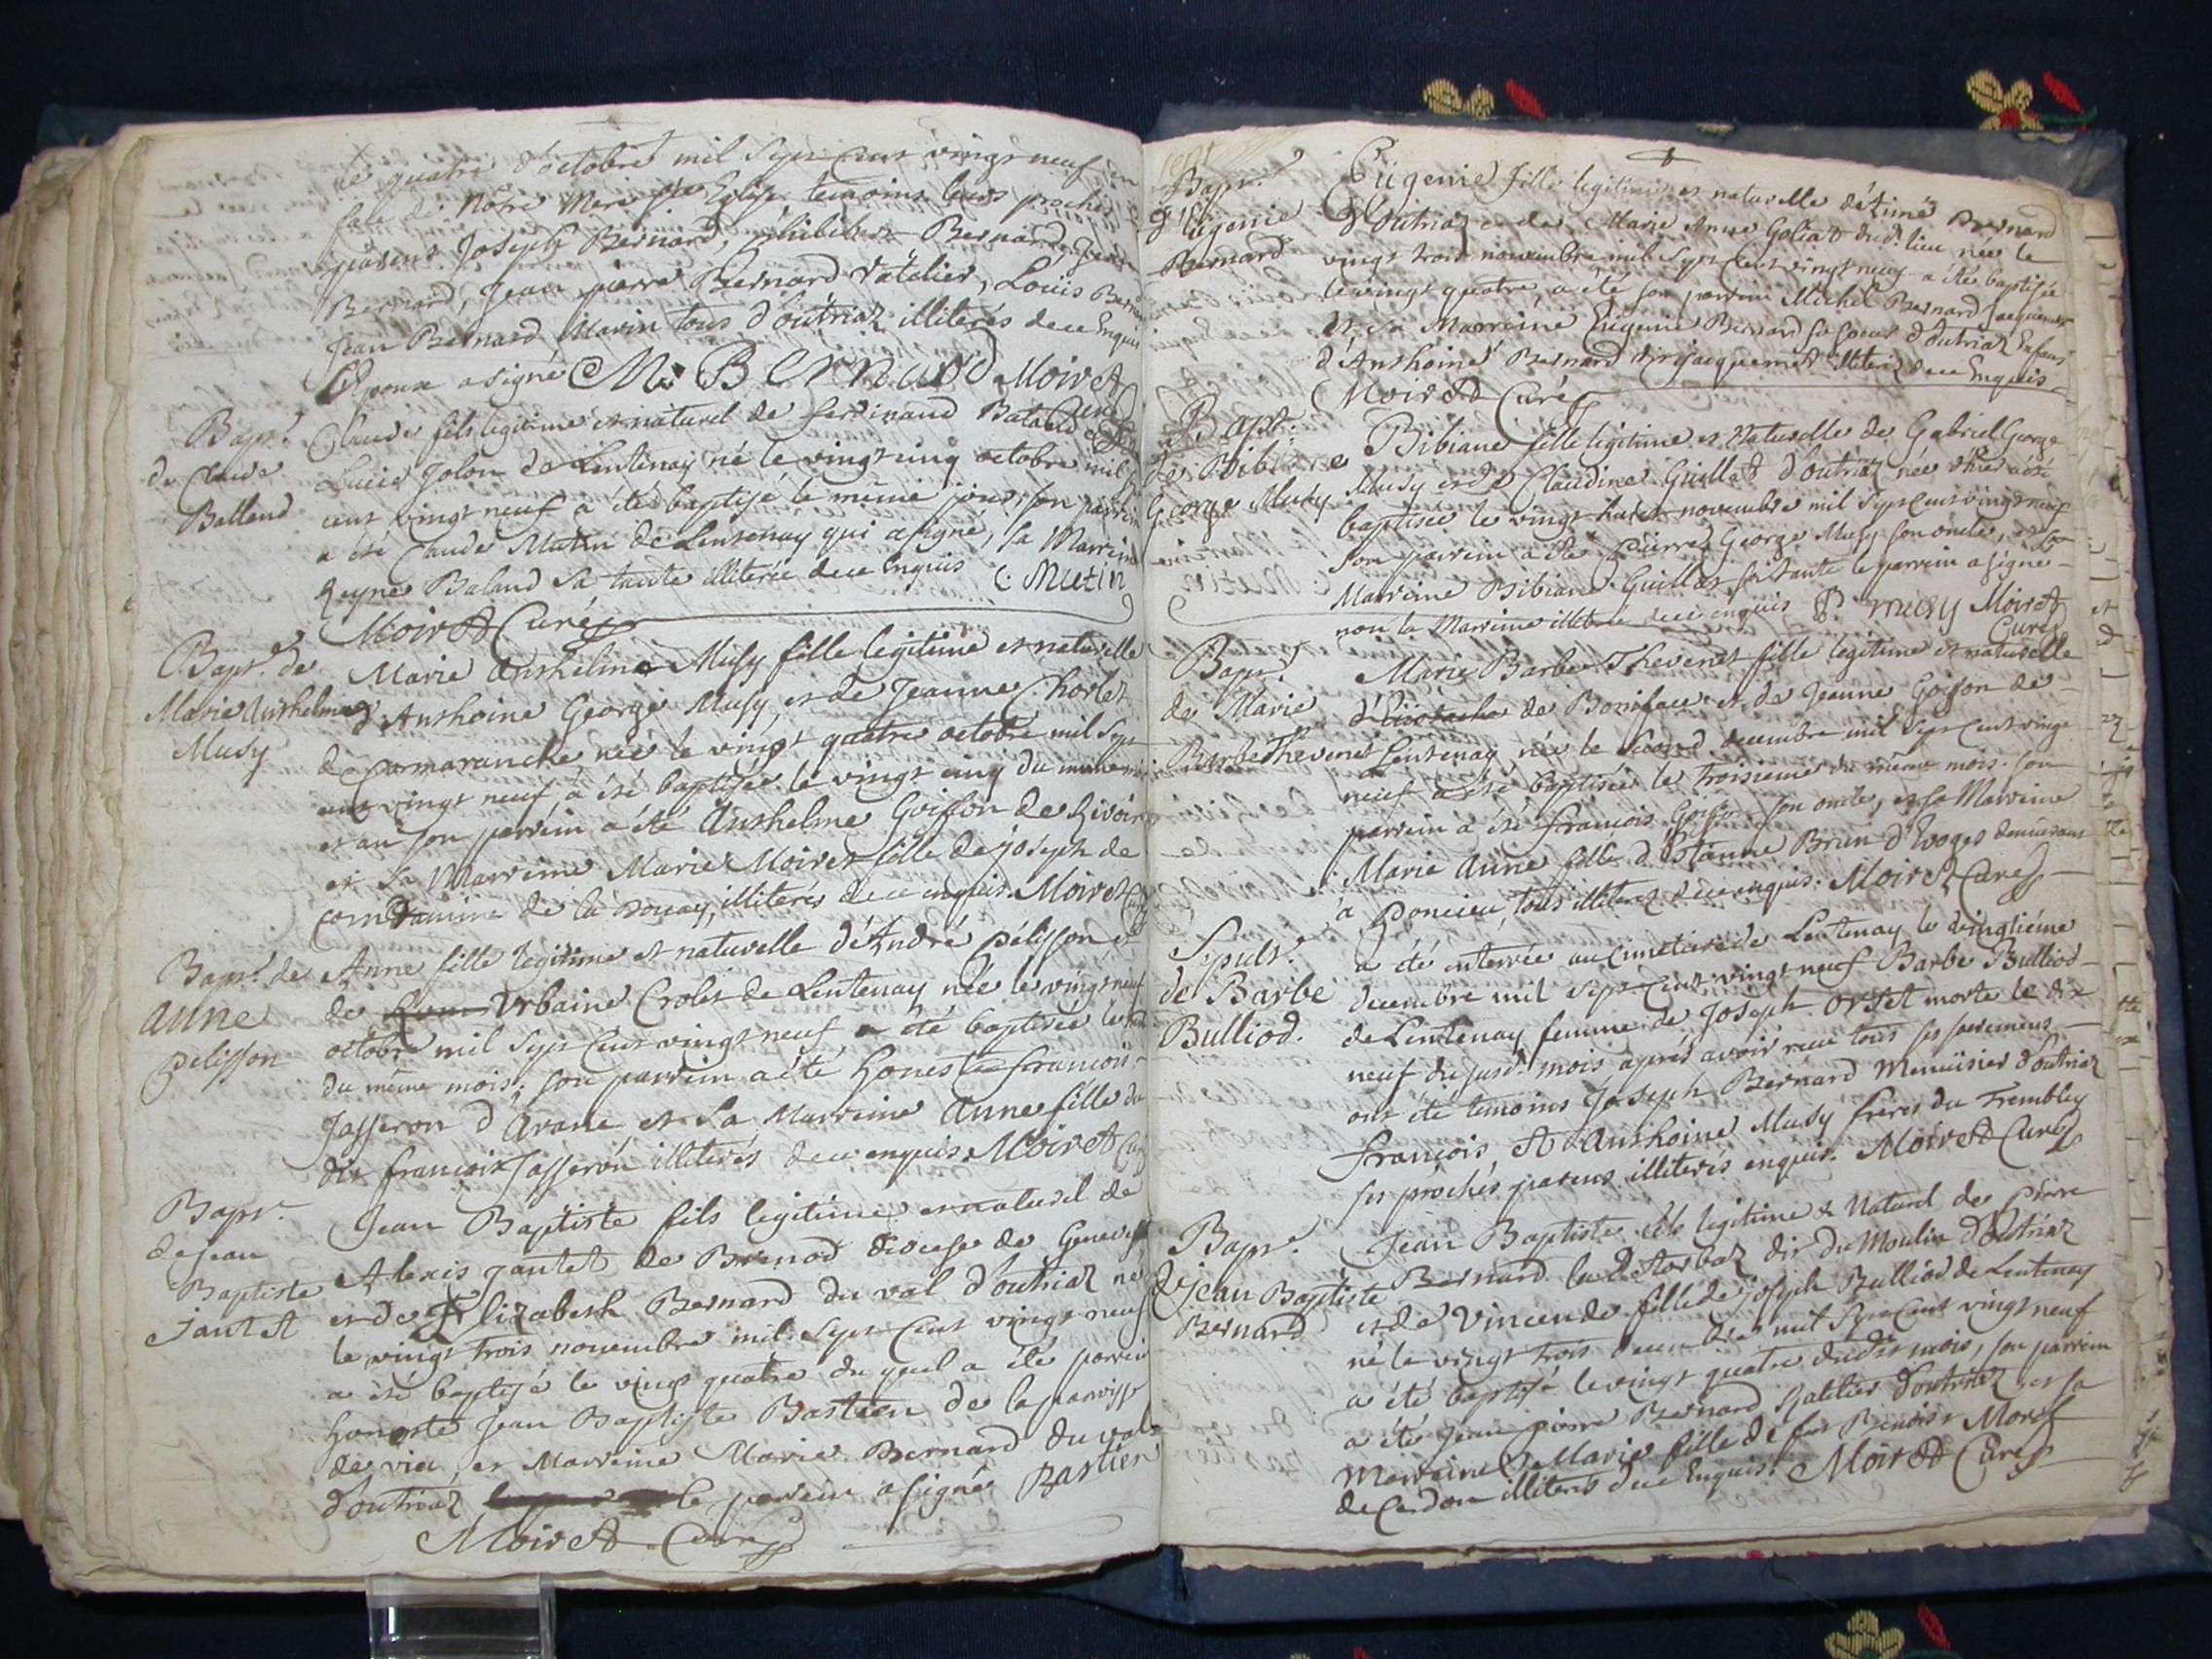 le quatre d'octobre mil sept cent vingt neuf en
face de Notre Mere Ste Eglise temoins leurs proches
parens Joseph Bernard, philibert Bernard, Jean
Bernard, Jean pierre Bernard Ratelier, Louis Bernard
Jean Bernard Marin tous d'outriaz illiterés de ce Enquis
L'Epoux a signé M. Bernard Moiret
Curé
Bapt.
de Claude
Balland
Claude fils legitime et naturel de ferdinand Baland et de
Lucie Jolon de Lentenay né le vingt cinq octobre mil sept
cent vingt neuf a été baptisé le même jour, son parrein
a été Claude Mutin de Lentenay qui a signé, sa Marreine
Reyne Baland sa tante illiterée de ce Enquis C. Mutin
Moiret Curé
Bapt. de
Marie Anthelme
Musy
Marie Anthelme Musy fille legitime et naturelle
d'Anthoine George Musy et de Jeanne Chorlet
de Cormaranche née le vingt quatre octobre mil sept
cent vingt neuf a été baptisée le vingt cinq du même mois
et an son parrein a été Anthelme Goiffon de Rivoire
et sa Marreine Marie Moiret fille de joseph de
comdamine de la Douay, illiterés de ce enquis. Moiret Curé
Bapt. de
Anne
pelisson
Anne fille legitime et naturelle d'André pélisson et
de Urbaine Crolet de Lentenay née le vingt neuf
octobre mil sept cent vingt neuf a été baptisée le
du même mois; son parrein a été honeste francois
Jasseron d'Arane et sa Marreine Anne fille du
dit francois Jasseron illiterés de ce enquis Moiret Curé
Bapt.
de Jean
Baptiste
jantet
Jean Baptiste fils legitime et naturel de
Alexis jantet de Brenod diocese de Geneve
et de Elizabeth Bernard du val d'outriaz né
le vingt trois novembre mil sept cent vingt neuf
a été baptisé le vingt quatre du quel a été parrein
honeste Jean Baptiste Bastien de la parroisse
de vieu et Marreine Marie Bernard du val
d'outriaz le parrein a signé Bastien
Moiret Curé
Bapt.
d'Eugenie
Bernard
Eugenie fille legitime et naturelle d'Etiene Bernard
d'Outriaz et de Marie Anne Goliat dud. lieu née le
vingt trois novembre mil sept cent vingt neuf a été baptisée
le vingt quatre a été son parrein Michel Bernard Jacquemet
et sa Marreine Eugenie Bernard sa soeur d'outriaz Enfans
d'Anthoine Bernard dit jacquemet illiterés de ce Enquis
Moiret Curé
Bapt.
de Bibiane
George Musy
Bibiane fille legitime et Naturelle de Gabriel George
Musy et de Claudine Guillot d'outriaz née hier a été
baptisée le vingt huit novembre mil sept cent vingt neuf
son parrein a été Pierre George Musy son oncle, et sa
Marreine Bibiane Guillot sa tante le parrein a signé
non la Marreine illiterée de ce enquis P. musy Moiret
Curé
Bapt.
de Marie
Barbe Thevenet
Marie Barbe Thevenet fille legitime et naturelle
de Boniface et de Jeanne Goiffon de
Lentenay née le second decembre mil sept cent vingt
neuf a été baptisée le troisieme du même mois. son
parrein a été francois Goiffon son oncle, et sa Marreine
Marie Anne fille d'Etienne Brun d'Evoges demeurant
à Poncieu, tous illiterez de ce enquis. Moiret Curé
Sepult.
de Barbe
Bulliod.
a été enterrée au Cimetiere de Lentenay le vingtiéme
decembre mil sept cent vingt neuf Barbe Bulliod
de Lentenay femme de Joseph Orset morte le dix
neuf du susd. mois aprés avoir receu tous ses sacremens
ont été temoins Joseph Bernard Menuisier d'outriaz
francois et Anthoine Musy freres du Trembley
ses prochés parens illiterés enquis. Moiret Curé
Bapt.
de Jean Baptiste
Bernard
Jean Baptiste fils legitime & Naturel de pierre
Bernard dit du Moulin d'Outriaz
et de Vincende fille de joseph Bulliod de Lentenay
né le vingt trois decembre mil sept cent vingt neuf
a été baptisé le vingt quatre dudit mois, son parrein
a été jean pierre Bernard Ratelier d'outriaz, et sa
Marreine Marie fille de feu Benoist Morel
de Cerdon illiterés de ce Enquis. Moiret Curé